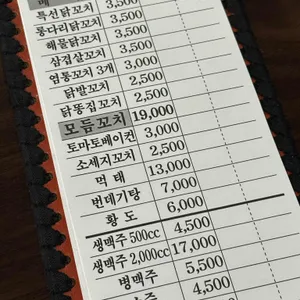 특선닭꼬치 3,500
롱다리닭꼬치 3,500
해물닭꼬치 3,500
삼겹살꼬치 3,500
염통꼬치 3개 3,000
닭발꼬치 2,500
닭똥집꼬치 2,500
모듬꼬치 19,000
토마토베이컨 3,000
소세지꼬치 2,500
먹태 13,000
번데기탕 7,000
황도 6,000
생맥주 500cc 4,500
생맥주 2,000cc 17,000
병맥주 5,500
4,500